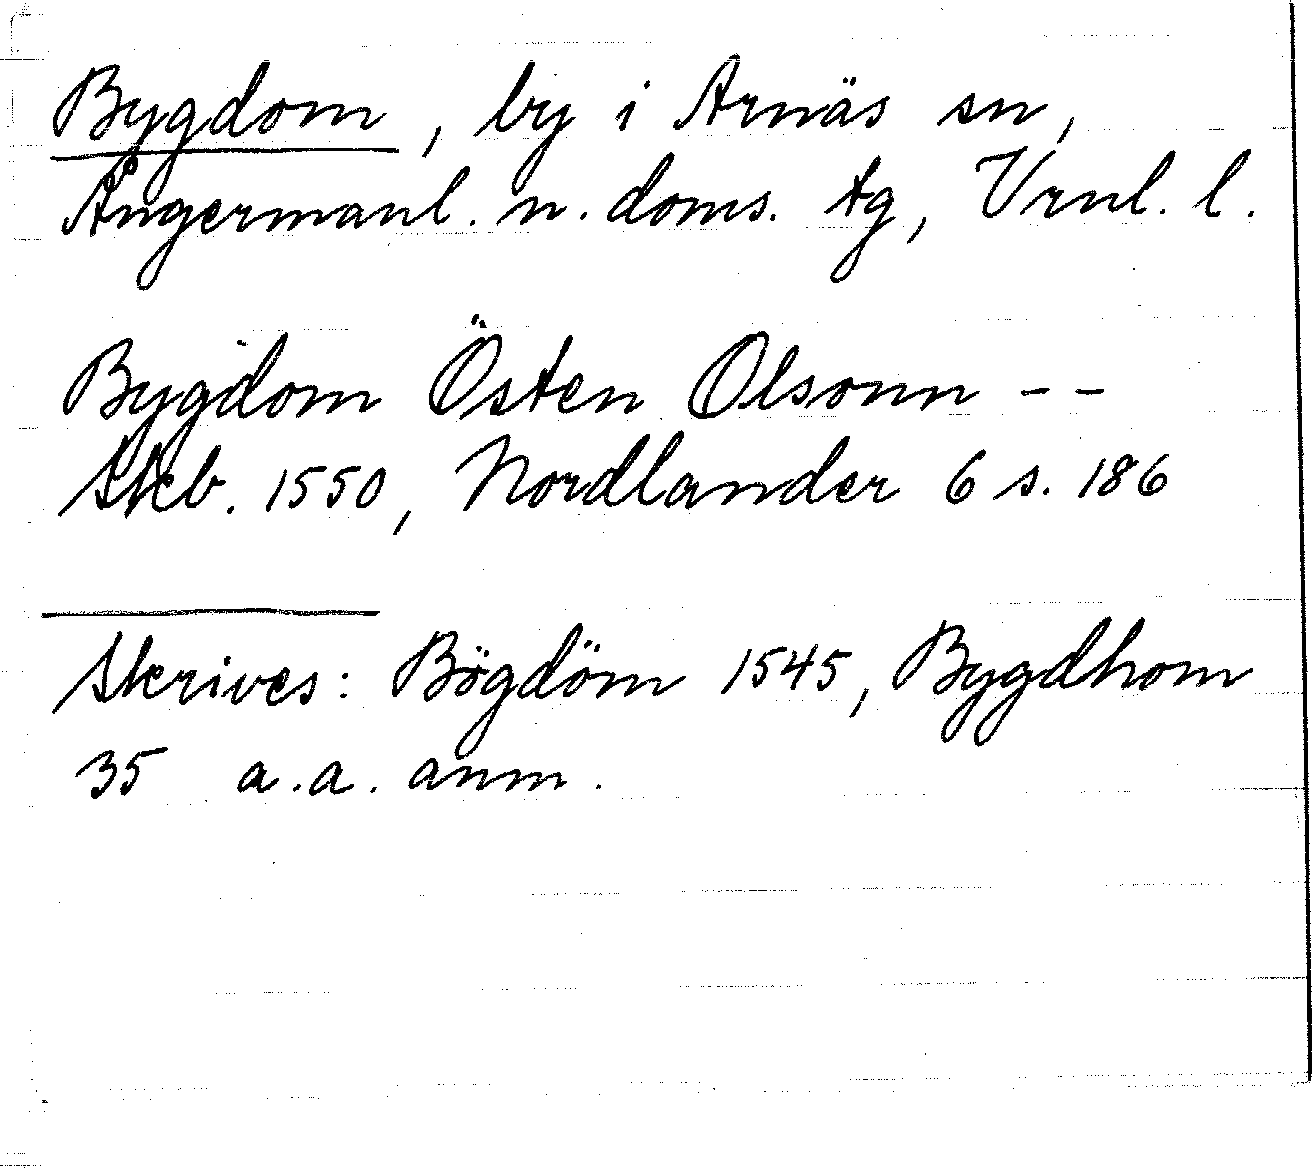 Bygdom, by i Arnäs sn,
Ångermanl. n. doms. tg, Vrnl. l.
Bygdom Östen Olsonn - -
Skb. 1550, Nordlander 6 s. 186
Skrives: Bögdöm 1545, Bygdhom
35 a.a. anm.